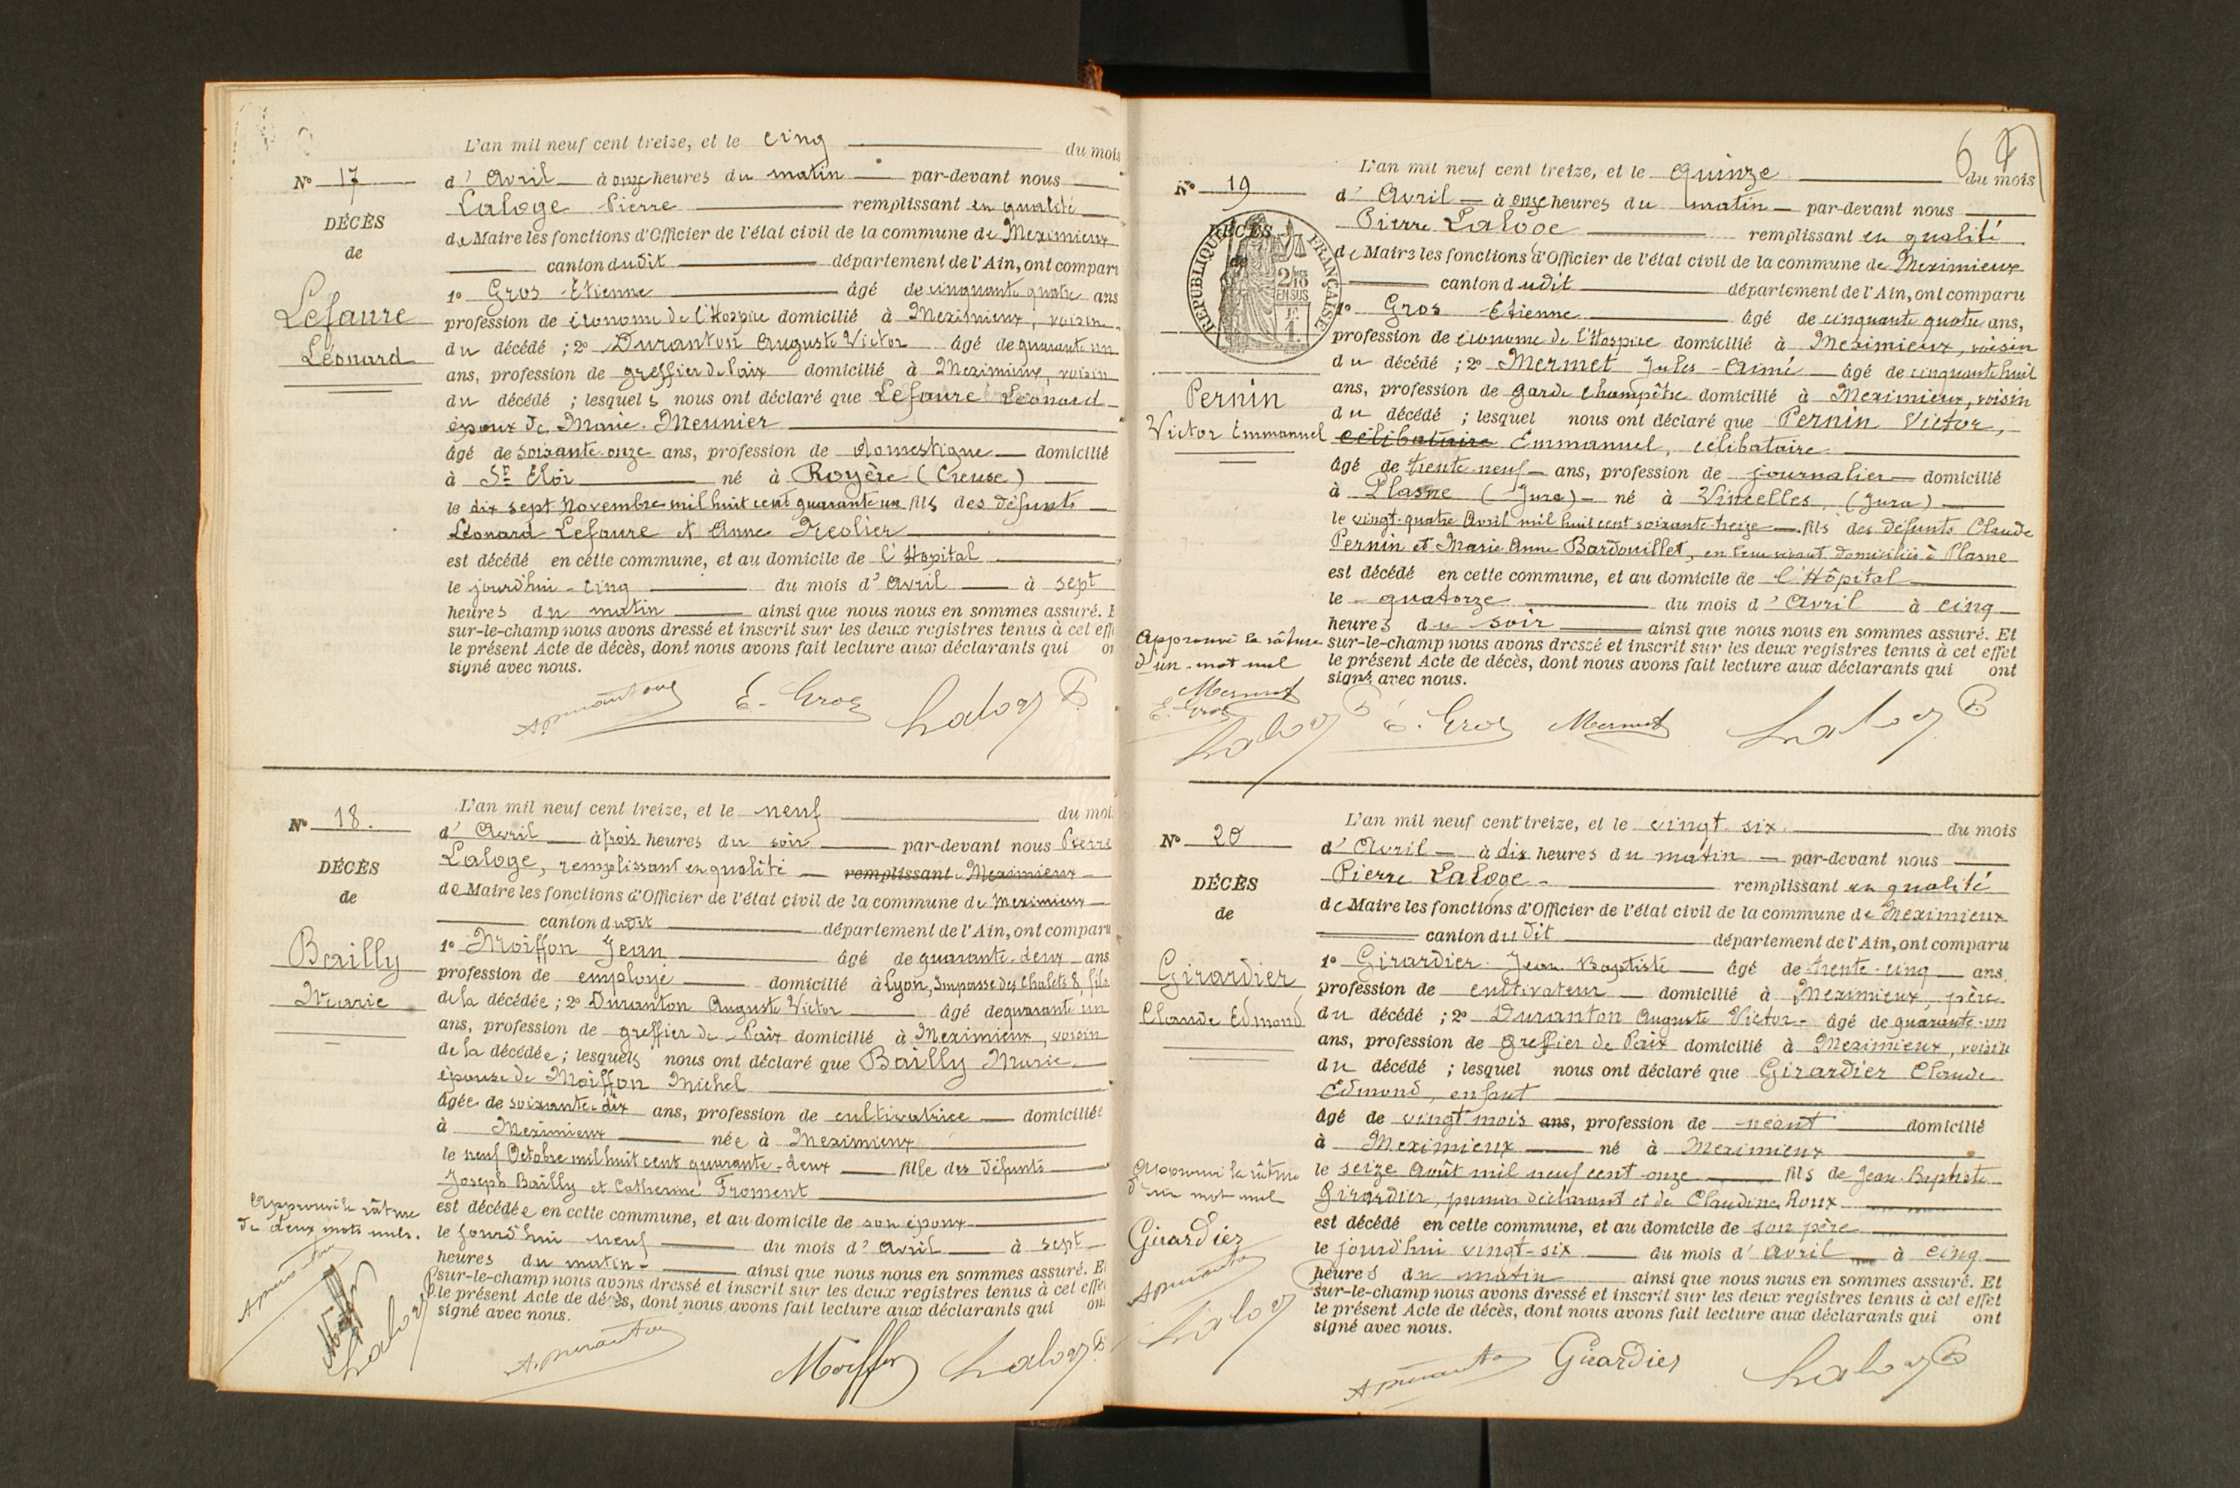 L'an mil neuf cent treize, et le cinq du mois
N° 17
d'Avril à onze heures du matin par-devant nous
Laloge Pierre remplissant en qualité
DÉCÈS
de Maire les fonctions d'Officier de l'état civil de la commune de Meximieux
de
canton dudit département de l'Ain, ont comparu
1° Gros Etienne âgé de cinquante quatre ans
Lefaure
profession de économe de l'Hospice domicilié à Meximieux, voisin
du décédé ; 2° Duranton Auguste Victor âgé de quarante un
Léonard
ans, profession de greffier de Paix domicilié à Meximieux, voisin
du décédé ; lesquels nous ont déclaré que Lefaure Léonard
époux de Marie Meunier
âgé de soixante-onze ans, profession de domestique domicilié
à St Eloi né à Royère (Creuse)
le dix sept Novembre mil huit cent quarante un fils des défunts
Léonard Lefaure et Anne
est décédé en cette commune, et au domicile de l'Hopital
le jourd'hui cinq du mois d'Avril à sept
heures du matin ainsi que nous nous en sommes assuré. E
sur-le-champ nous avons dressé et inscrit sur les deux registres tenus à cet eff
le présent Acte de décès, dont nous avons fait lecture aux déclarants qui on
signé avec nous.
E. Gros Laloge P.
L'an mil neuf cent treize, et le neuf du moi
N° 18.
d'Avril à trois heures du soir par-devant nous Pierre
Laloge, remplissant en qualité remplissant Meximieux
DÉCÈS
de Maire les fonctions d'Officier de l'état civil de la commune de Meximieux
de
canton dudit département de l'Ain, ont comparu
1° Moiffon Jean âgé de quarante-deux ans
Bailly
profession de employé domicilié à Lyon, Impasse des Chalets 8, fils
Marie
de la décédée ; 2° Duranton Auguste Victor âgé de quarante un
ans, profession de greffier de Paix domicilié à Meximieux, voisin
de la décédée ; lesquels nous ont déclaré que Bailly Marie
épouse de Moiffon Michel
âgée de soixante-dix ans, profession de cultivatrice domiciliée
à Meximieux née à Meximieux
le neuf Octobre mil huit cent quarante-deux fille des défunts
Joseph Bailly et Catherine Froment
est décédée en cette commune, et au domicile de son époux
le jourd'hui neuf du mois d'Avril à sept
heures du matin ainsi que nous nous en sommes assuré. E
sur-le-champ nous avons dressé et inscrit sur les deux registres tenus à cet effet
le présent Acte de décès, dont nous avons fait lecture aux déclarants qui ont
signé avec nous.
Approuvé la râture
de deux mots nuls.
Laloge P.
Moiffon Laloge P.
6
L'an mil neuf cent treize, et le Quinze du mois
N° 19
d'Avril à onze heures du matin par-devant nous
Pierre Laloge remplissant en qualité
DÉCÈS
de
RÉPUBLIQUE FRANÇAISE
2/10 EN SUS
de Maire les fonctions d'Officier de l'état civil de la commune de Meximieux
canton dudit département de l'Ain, ont comparu
1° Gros Etienne âgé de cinquante quatre ans,
profession de économe de l'Hospice domicilié à Meximieux, voisin
du décédé ; 2° Mermet Jules Aimé âgé de cinquante huit
ans, profession de garde champêtre domicilié à Meximieux, voisin
Pernin
du décédé ; lesquel nous ont déclaré que Pernin Victor,
Victor Emmanuel
célibataire Emmanuel, célibataire
âgé de trente-neuf ans, profession de journalier domicilié
à Plasne (Jura) né à Vincelles, (Jura)
le vingt-quatre Avril mil huit cent soixante-treize fils des défunts Claude
Pernin et Marie Anne Bardouillet, en leur vivant domiciliés à Plasne
est décédé en cette commune, et au domicile de l'Hôpital
le quatorze du mois d'Avril à cinq
heures du soir ainsi que nous nous en sommes assuré. Et
sur-le-champ nous avons dressé et inscrit sur les deux registres tenus à cet effet
le présent Acte de décès, dont nous avons fait lecture aux déclarants qui ont
signé avec nous.
Approuvé la râture
d'un mot nul
Mermet
E. Gros
Laloge P
E. Gros Mermet Laloge P.
L'an mil neuf cent treize, et le vingt six du mois
N° 20
d'Avril à dix heures du matin par-devant nous
Pierre Laloge remplissant en qualité
DÉCÈS
de Maire les fonctions d'Officier de l'état civil de la commune de Meximieux
de
canton dudit département de l'Ain, ont comparu
1° Girardier Jean Baptiste âgé de trente-cinq ans
Girardier
profession de cultivateur domicilié à Meximieux, père
Claude Edmond
du décédé ; 2° Duranton Auguste Victor âgé de quarante-un
ans, profession de greffier de Paix domicilié à Meximieux, voisin
du décédé ; lesquel nous ont déclaré que Girardier Claude
Edmond, enfant
âgé de vingt mois ans, profession de néant domicilié
à Meximieux né à Meximieux
le seize Août mil neuf cent onze fils de Jean-Baptiste
Girardier, premier déclarant et de Claudine Roux
est décédé en cette commune, et au domicile de son père
le jourd'hui vingt-six du mois d'Avril à cinq
heures du matin ainsi que nous nous en sommes assuré. Et
sur-le-champ nous avons dressé et inscrit sur les deux registres tenus à cet effet
le présent Acte de décès, dont nous avons fait lecture aux déclarants qui ont
signé avec nous.
Approuvé la râture
d'un mot nul
Girardier
Laloge P
Girardier Laloge P